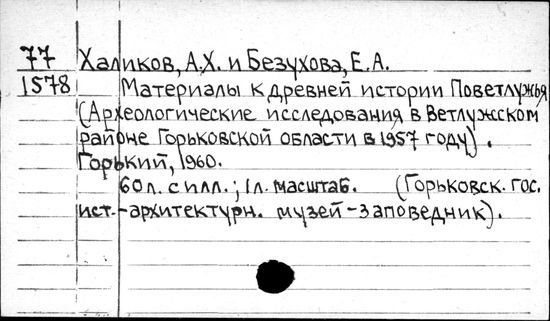 77 Халиков, А.Х. и Безухова, Е.А.
1578 Материалы к древней истории Поветлужья
(Археологические исследования в Ветлужском
районе Горьковской области в 1957 году).
Горький, 1960.
60л. с илл.; 1л. масштаб. (Горьковск. гос.
ист.-архитектурн. музей-заповедник).